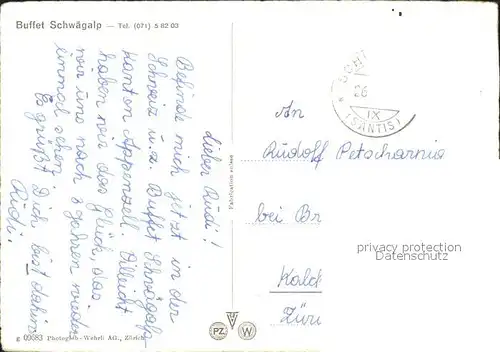 Buffet Schwägalp — Tel. (071) 5 82 03
Lieber Rudi!
Befinde mich jetzt in der
Schweiz u. z. Buffet Schwägalp
Kanton Appenzell. Villeicht
haben wir das glück, das
wir uns nach 3 Jahren wieder
einmal sehen.
Es grüßt Dich, bist dahin
Rudi,
Fabrication suisse
26
IX
(SÄNTIS)
An
Rudolf Petscharnig
bei Br
Kald
Züri
privacy protection
Datenschutz
PZ W
g 09583 Photogl.-Wehrli AG., Zürich